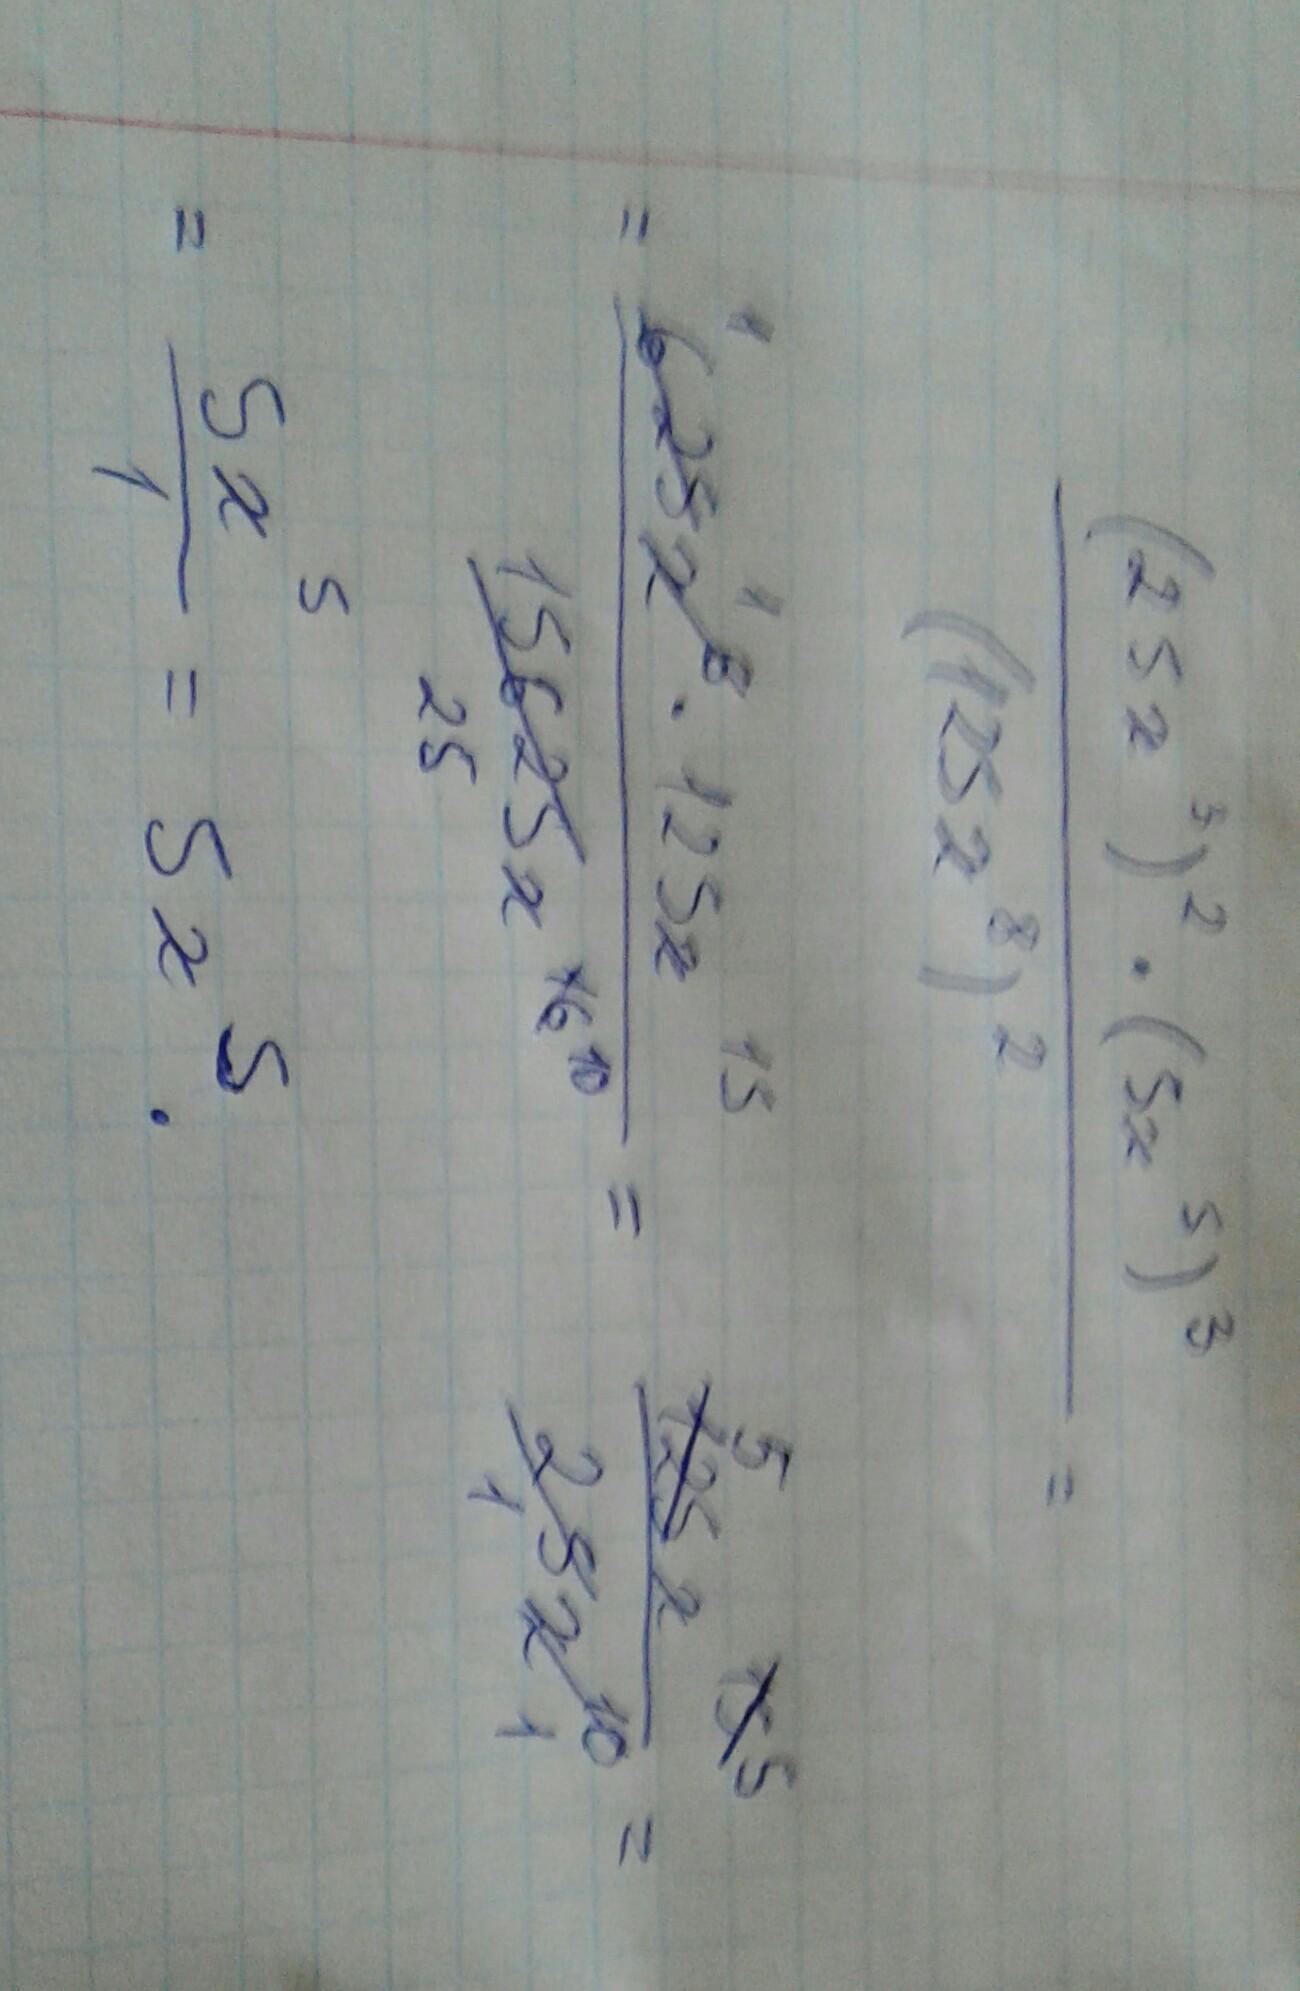 (25x³)² · (5x⁵)³
(125x⁸)² =
= 1 1 625x⁶ · 125x¹⁵
15625x¹⁶ ¹⁰ =
25
5 125x¹⁵ 5
25x¹⁰ =
1 1
= 5x⁵
1 = 5x⁵.